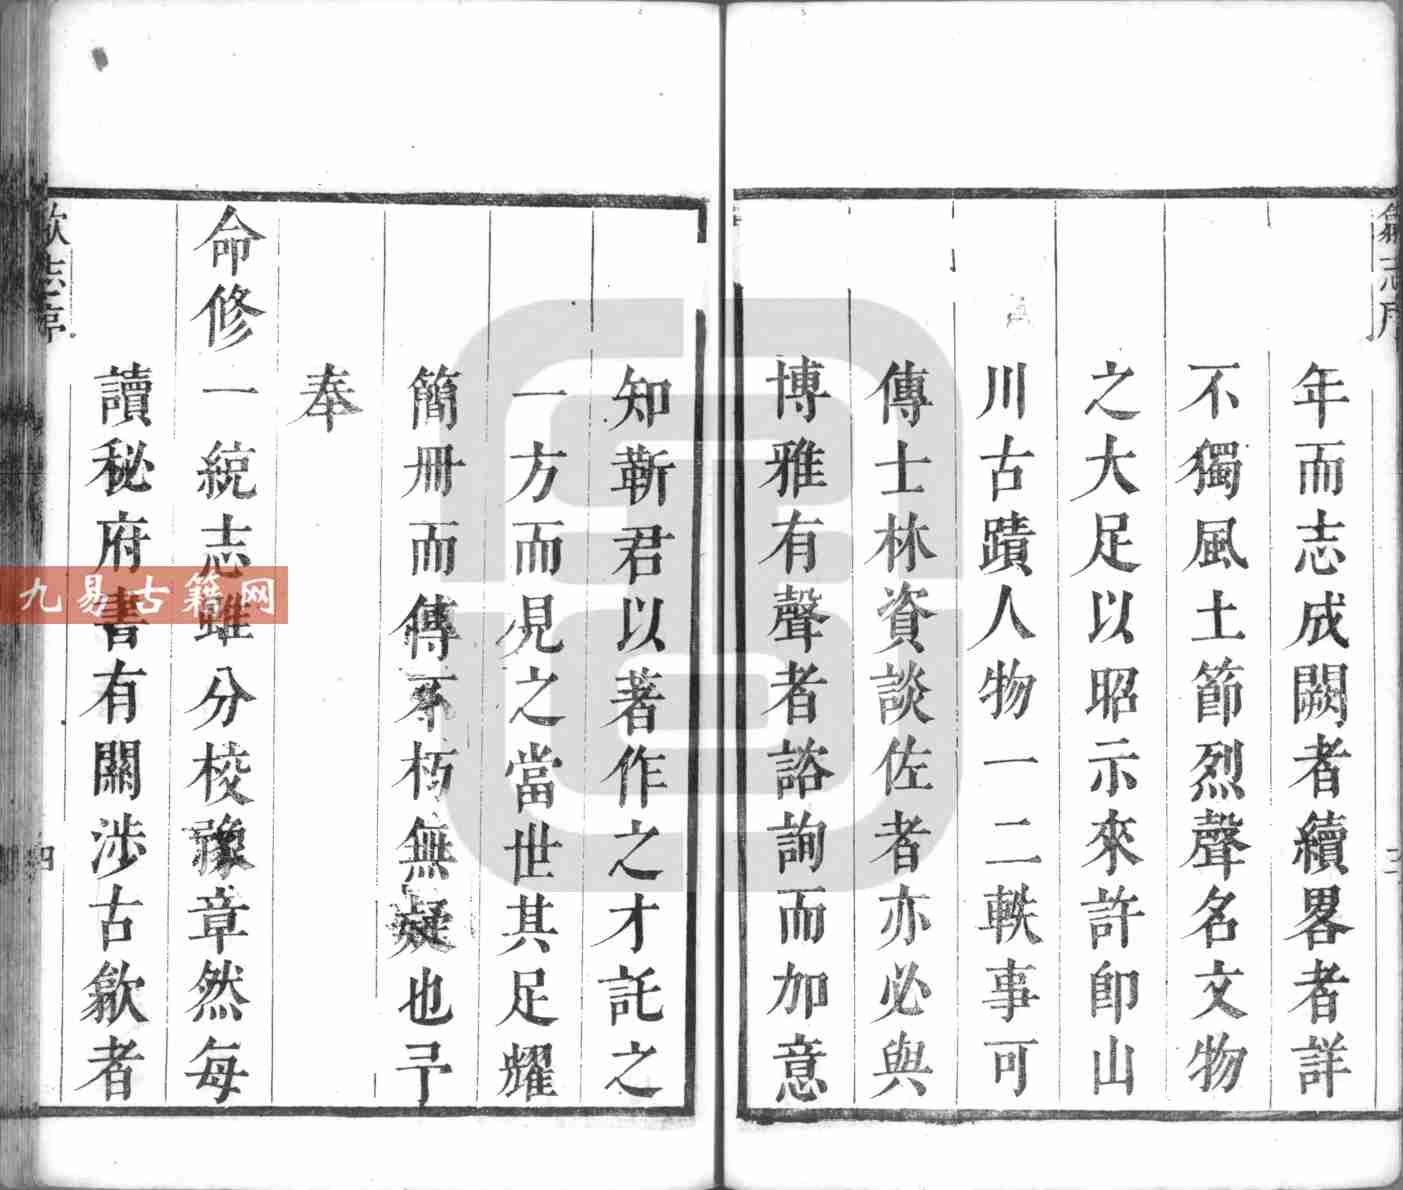 年而志成闕者續畧者詳
不獨風土節烈聲名文物
之大足以昭示來許卽山
川古蹟人物一二軼事可
傳士林資談佐者亦必與
博雅有聲者諮詢而加意
知靳君以著作之才託之
一方而見之當世其足耀
簡冊而傳不朽無疑也予
奉
命修一統志雖分校豫章然每
讀秘府書有關涉古歙者
歙志序
四
九易古籍网